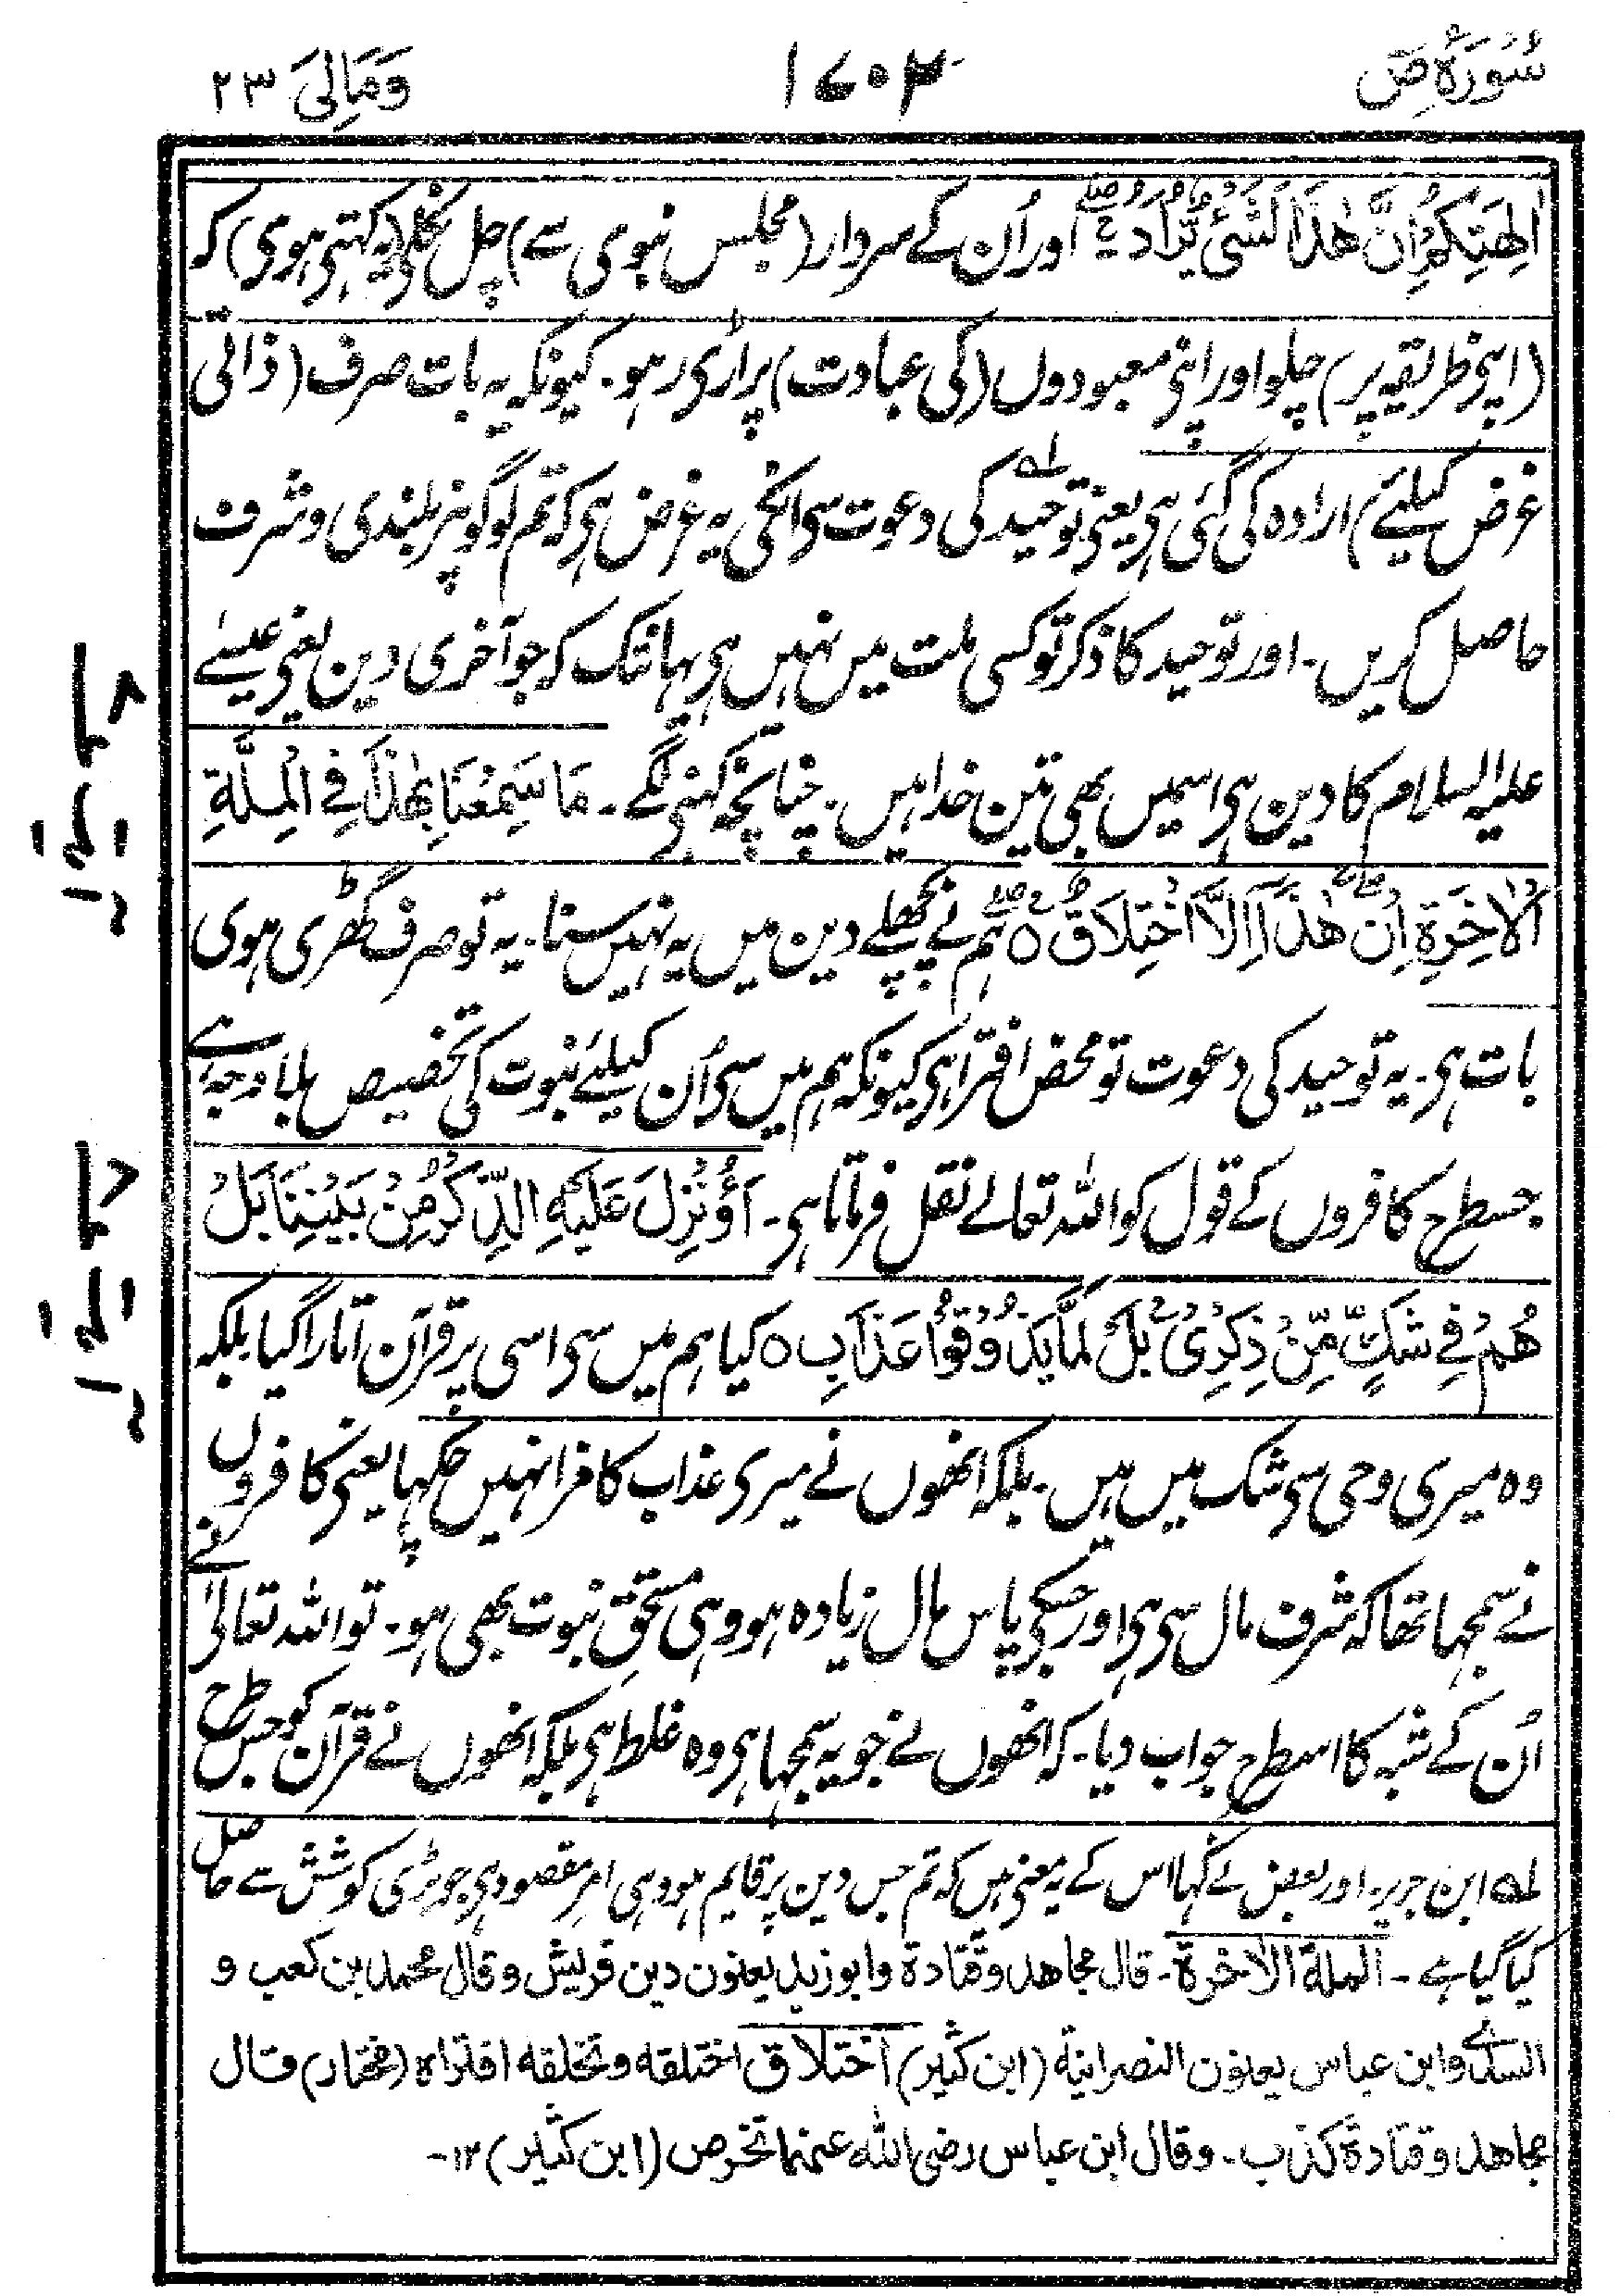 سُورَةُ صٓ
۱۷۰۴
وَمَالِیَ ۲۳
اٰلِهَتِكُمْ اِنَّ هٰذَا لَشَیْءٌ یُّرَادُ اور اُن کے سردار (مجلس نبوی سے) چل نکلی (یہ کہتی ہوی) کہ
(اپنی طریقہ پر) چلو اور اپنی معبودوں (کی عبادت) پر اڑی رہو۔ کیونکہ یہ بات صرف (ذاتی
غرض کیلئے) ارادہ کی گئی ہی یعنی توحید کی دعوت سی انکی یہ غرض ہی کہ تم لوگو نپر بلندی و شرف
حاصل کریں۔ اور توحید کا ذکر تو کسی ملت میں نہیں ہی یہانتک کہ جو آخری دین یعنی عیسےٰ
علیہ السلام کا دین ہی اسمیں بھی تین خدا ہیں۔ چنانچہ کہنی لگے۔ مَا سَمِعْنَا بِهٰذَا فِی الْمِلَّةِ
الْاٰخِرَةِ اِنْ هٰذَآ اِلَّا اخْتِلَاقٌ ۝ ہم نے پچھلے دین میں یہ نہیں سنا۔ یہ تو صرف گھڑی ہوی
بات ہی۔ یہ توحید کی دعوت تو محض افترا ہی کیونکہ ہم میں سی اُن کیلئے نبوت کی تخصیص بلا وجہ ہے
جسطرح کافروں کے قول کو اللہ تعالے نقل فرماتا ہی۔ ءَاُنْزِلَ عَلَیْهِ الذِّكْرُ مِنْ بَیْنِنَا بَلْ
هُمْ فِیْ شَكٍّ مِّنْ ذِكْرِیْ بَلْ لَّمَّا یَذُوْقُوْا عَذَابِ ۝ کیا ہم میں سی اسی پر قرآن اتارا گیا بلکہ
وہ میری وحی سی شک میں ہیں۔ بلکہ انھوں نے میری عذاب کا مزا نہیں چکہا یعنی کافروں
نے سمجہا تھا کہ شرف مال سی ہی اور جسکی پاس مال زیادہ ہو وہی مستحق نبوت بھی ہو۔ تو اللہ تعالیٰ نے
اُن کے شبہ کا اسطرح جواب دیا۔ کہ انھوں نے جو یہ سمجہا ہی وہ غلط ہی بلکہ انھوں نے قرآن کو جس طرح
لہ ابن جریر۔ اور بعض نے کہا اس کے یہ معنی ہیں کہ تم جس دین پر قایم ہو وہی امر مقصود ہی جو بڑی کوشش سے حاصل
کیا گیا ہے ۔ الملة الاخرة۔ قال مجاهد وقتادة وابو زید یعنون دین قریش وقال محمد بن کعب و
السدی وابن عباس یعنون النصرانیة (ابن کثیر) اختلاق اختلقه وتخلقه افتراه (مختار) قال
مجاهد وقتادة کذب۔ وقال ابن عباس رضی الله عنهما تخرص (ابن کثیر) ۱۲۔